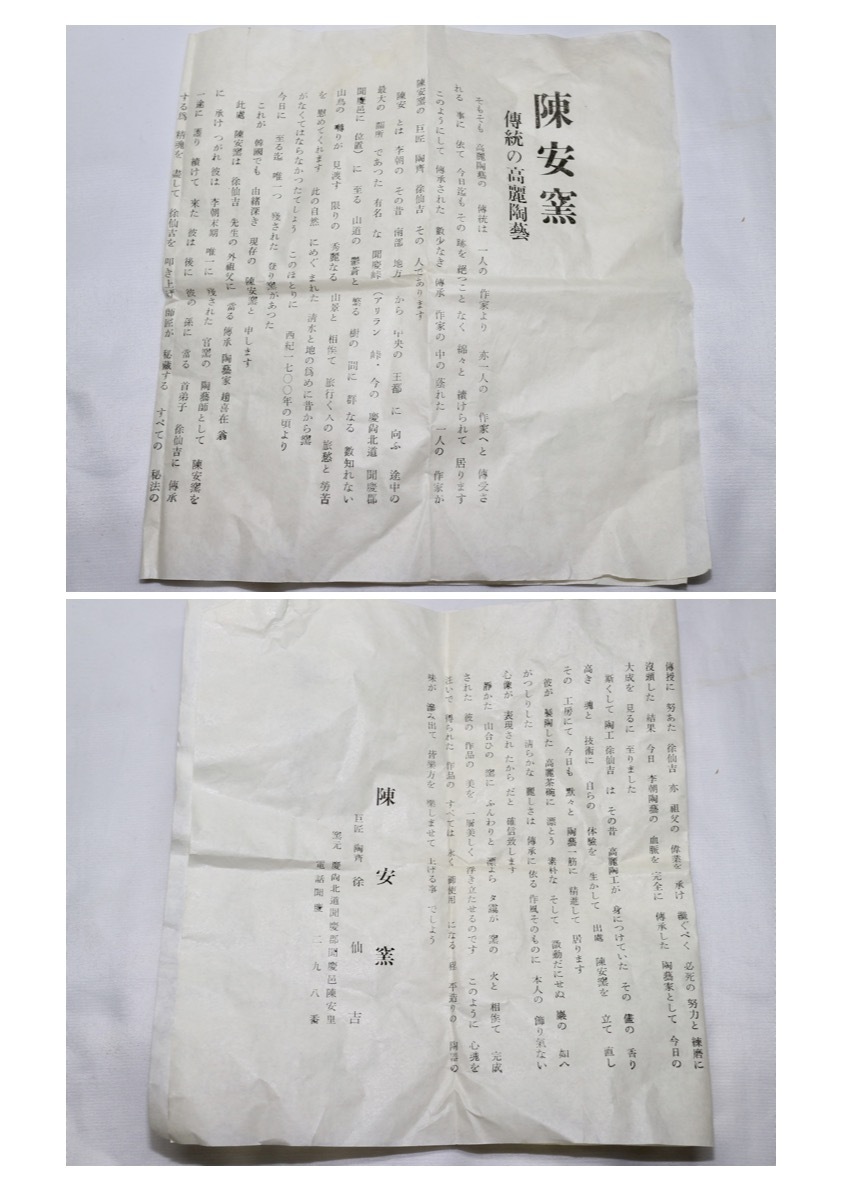 陳安窯
傳統の高麗陶藝
そもそも 高麗陶藝の 傳統は 一人の 作家より 亦一人の 作家へと 傳受さ
れる 事に 依て 今日迄も その 跡を 絶つこと なく 綿々と 續けられて 居ります
このようにして 傳承された 數少なき 傳承 作家の 中の 一人の 作家が
陳安窯の 巨匠 陶齊 徐仙吉 その 人であります
陳安 とは 李朝の その昔 南部 地方 から 中央の 王都 に 向ふ 途中の
最大の 關所 であつた 有名 な 聞慶峠 (アリラン 峠・今の 慶尙北道 聞慶郡
聞慶邑に 位置) に 至る 山道の 鬱蒼と 繁る 樹の 間に 群 なる 數知れない
山鳥の 囀りが 見渡す 限りの 秀麗なる 山景と 相俟て 旅行く人の 旅愁と 勞苦
を 慰めてくれます 此の自然 にめぐまれた 清水と地の爲めに昔から窯
がなくてはならなかつたでしょう このほとりに 西紀一七〇〇年の頃より
今日に 至る迄 唯一つ 殘された 登り窯があつた
これが 韓國でも 由緖深き 現存の 陳安窯と 申します
此處 陳安窯は 徐仙吉 先生の 外祖父に 當る 傳承 陶藝家 趙喜在 翁
に 承け つがれ 彼は 李朝末期 唯一に 殘された 官窯の 陶藝師として 陳安窯を
一途に 護り 續けて 來た 彼は 後に 彼の 孫に 當る 首弟子 徐仙吉に 傳承
する爲 精魂を 盡して 徐仙吉を 叩き上げ 師匠が 秘藏する すべての 秘法の
傳授に 努めた 徐仙吉 亦 祖父の 偉業を 承け 繼ぐべく 必死の 努力と 練磨に
沒頭した 結果 今日 李朝陶藝の 血脈を 完全に 傳承した 陶藝家として 今日の
大成を 見るに 至りました
斯くして 陶工 徐仙吉 は その昔 高麗陶工が 身につけていた その 儘の 香り
高き 魂と 技術に 自らの 体驗を 生かして 出處 陳安窯を 立て 直し
その 工房にて 今日も 默々と 陶藝一筋に 精進して 居ります
彼が 製陶した 高麗茶碗に 漂とう 素朴な そして 微動だにせぬ 巖の 如へ
がつしりした 淸らかな 麗しさは 傳承に 依る 作風そのものに 本人の 飾り氣ない
心象が 表現された からだと 確信致します
靜かた 山合ひの 窯に ふんわりと 漂よう 夕靄が 窯の 火と 相俟て 完成
された 彼の 作品の 美を 一層美しく 浮き立たせるのです このように 心魂を
注いで 得られた 作品の すべては 永く 御使用 になる 程 手造りの 陶器の
味が 滲み出て 皆樣方を 樂しませて 上げる事 でしょう
陳安窯
巨匠 陶齊 徐仙吉
窯元 慶尙北道聞慶郡聞慶邑陳安里
電話聞慶 二九八番